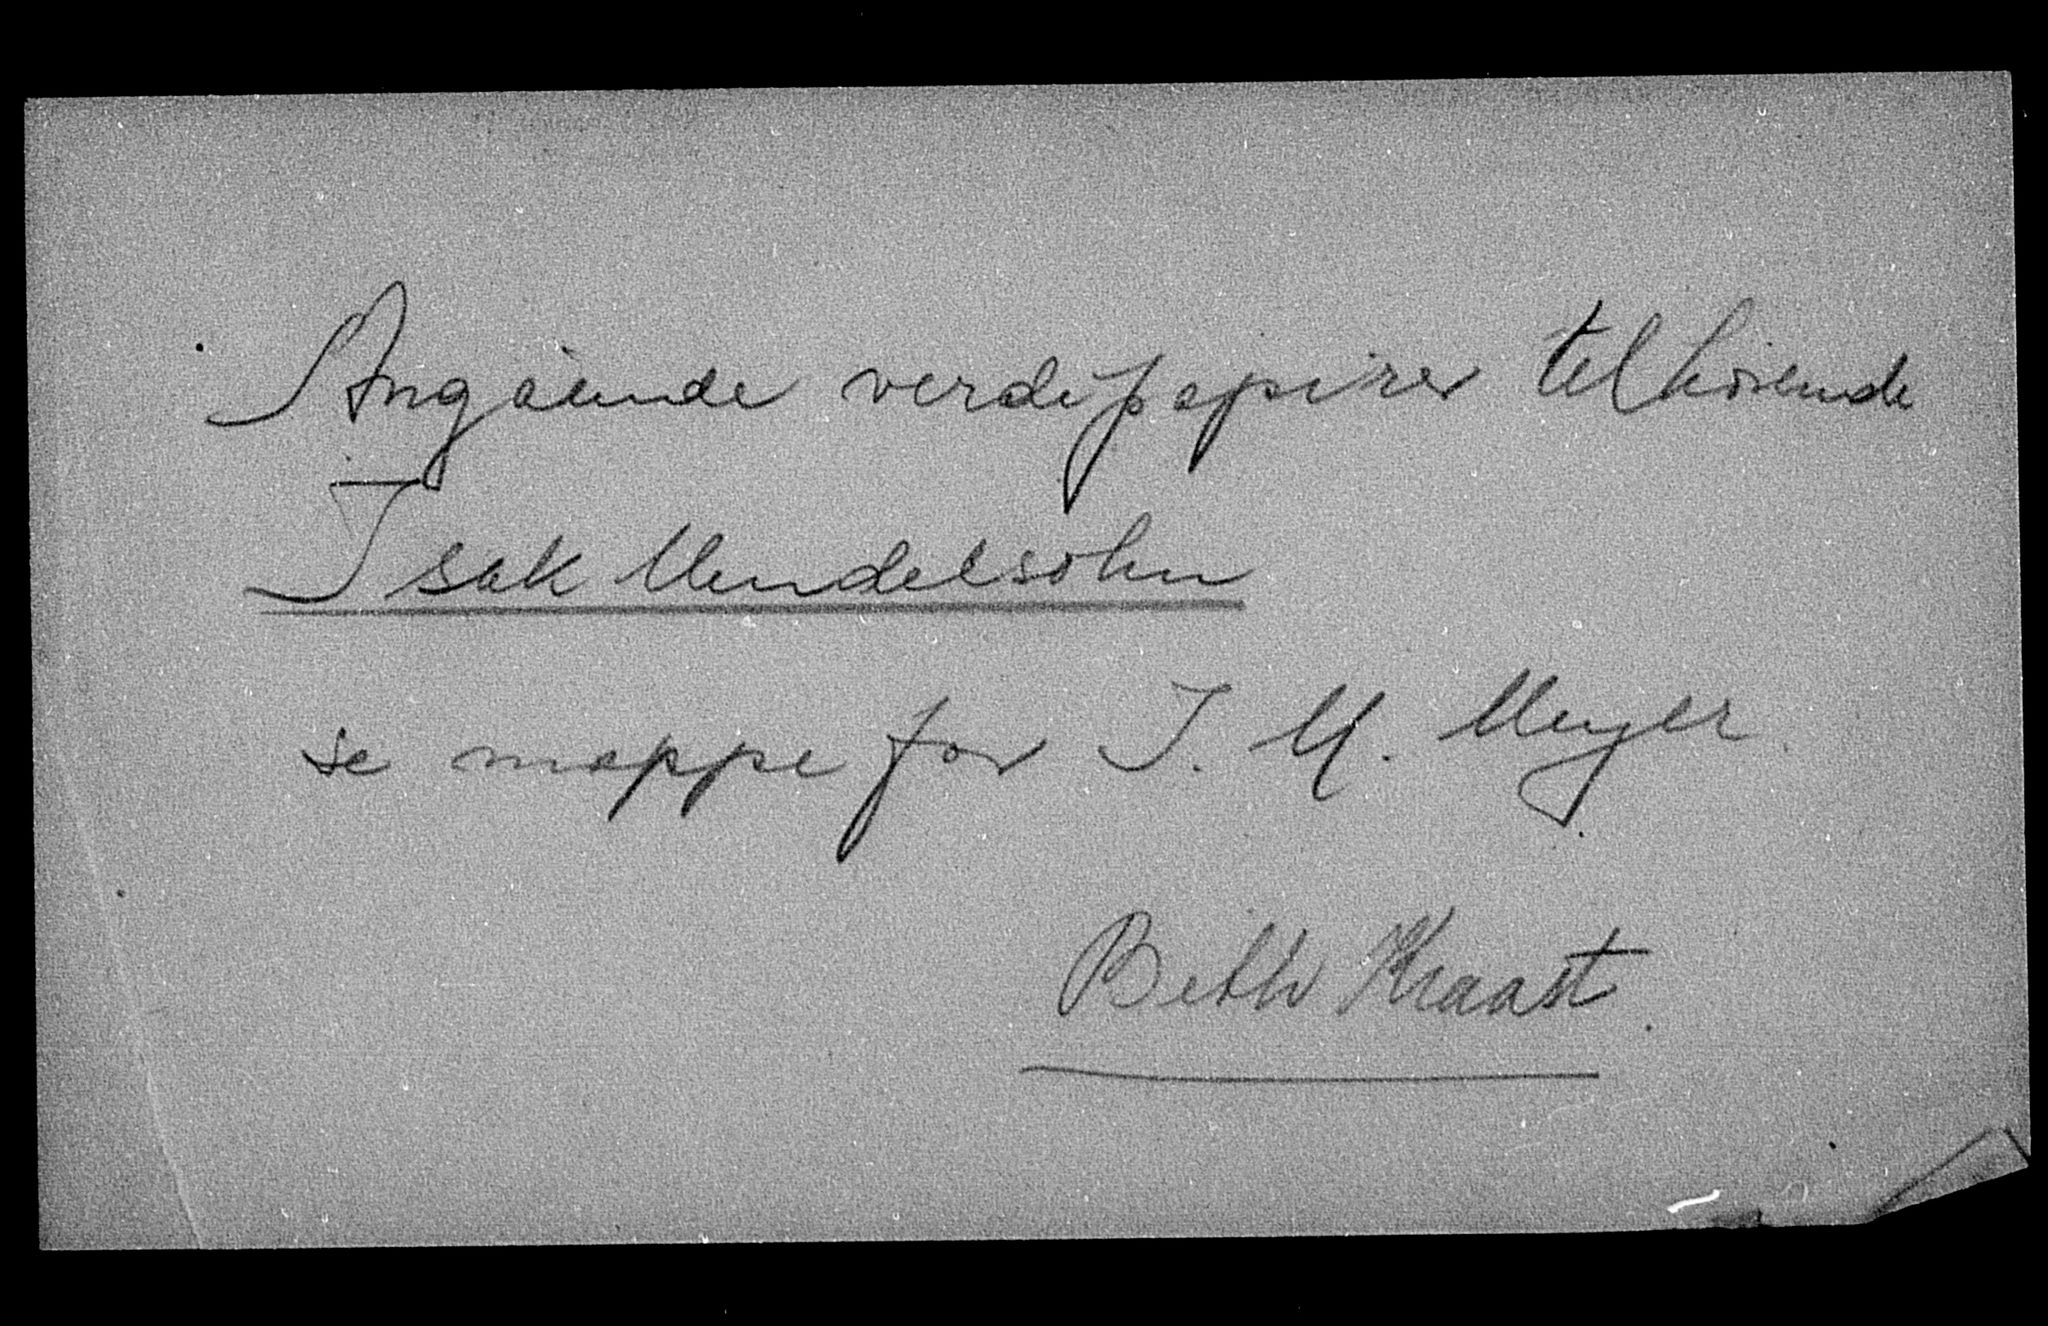 Angående verdipapirer tilhørende
Isak Mendelsohn
se mappe for I. M. Meyer.
Beth Kraast